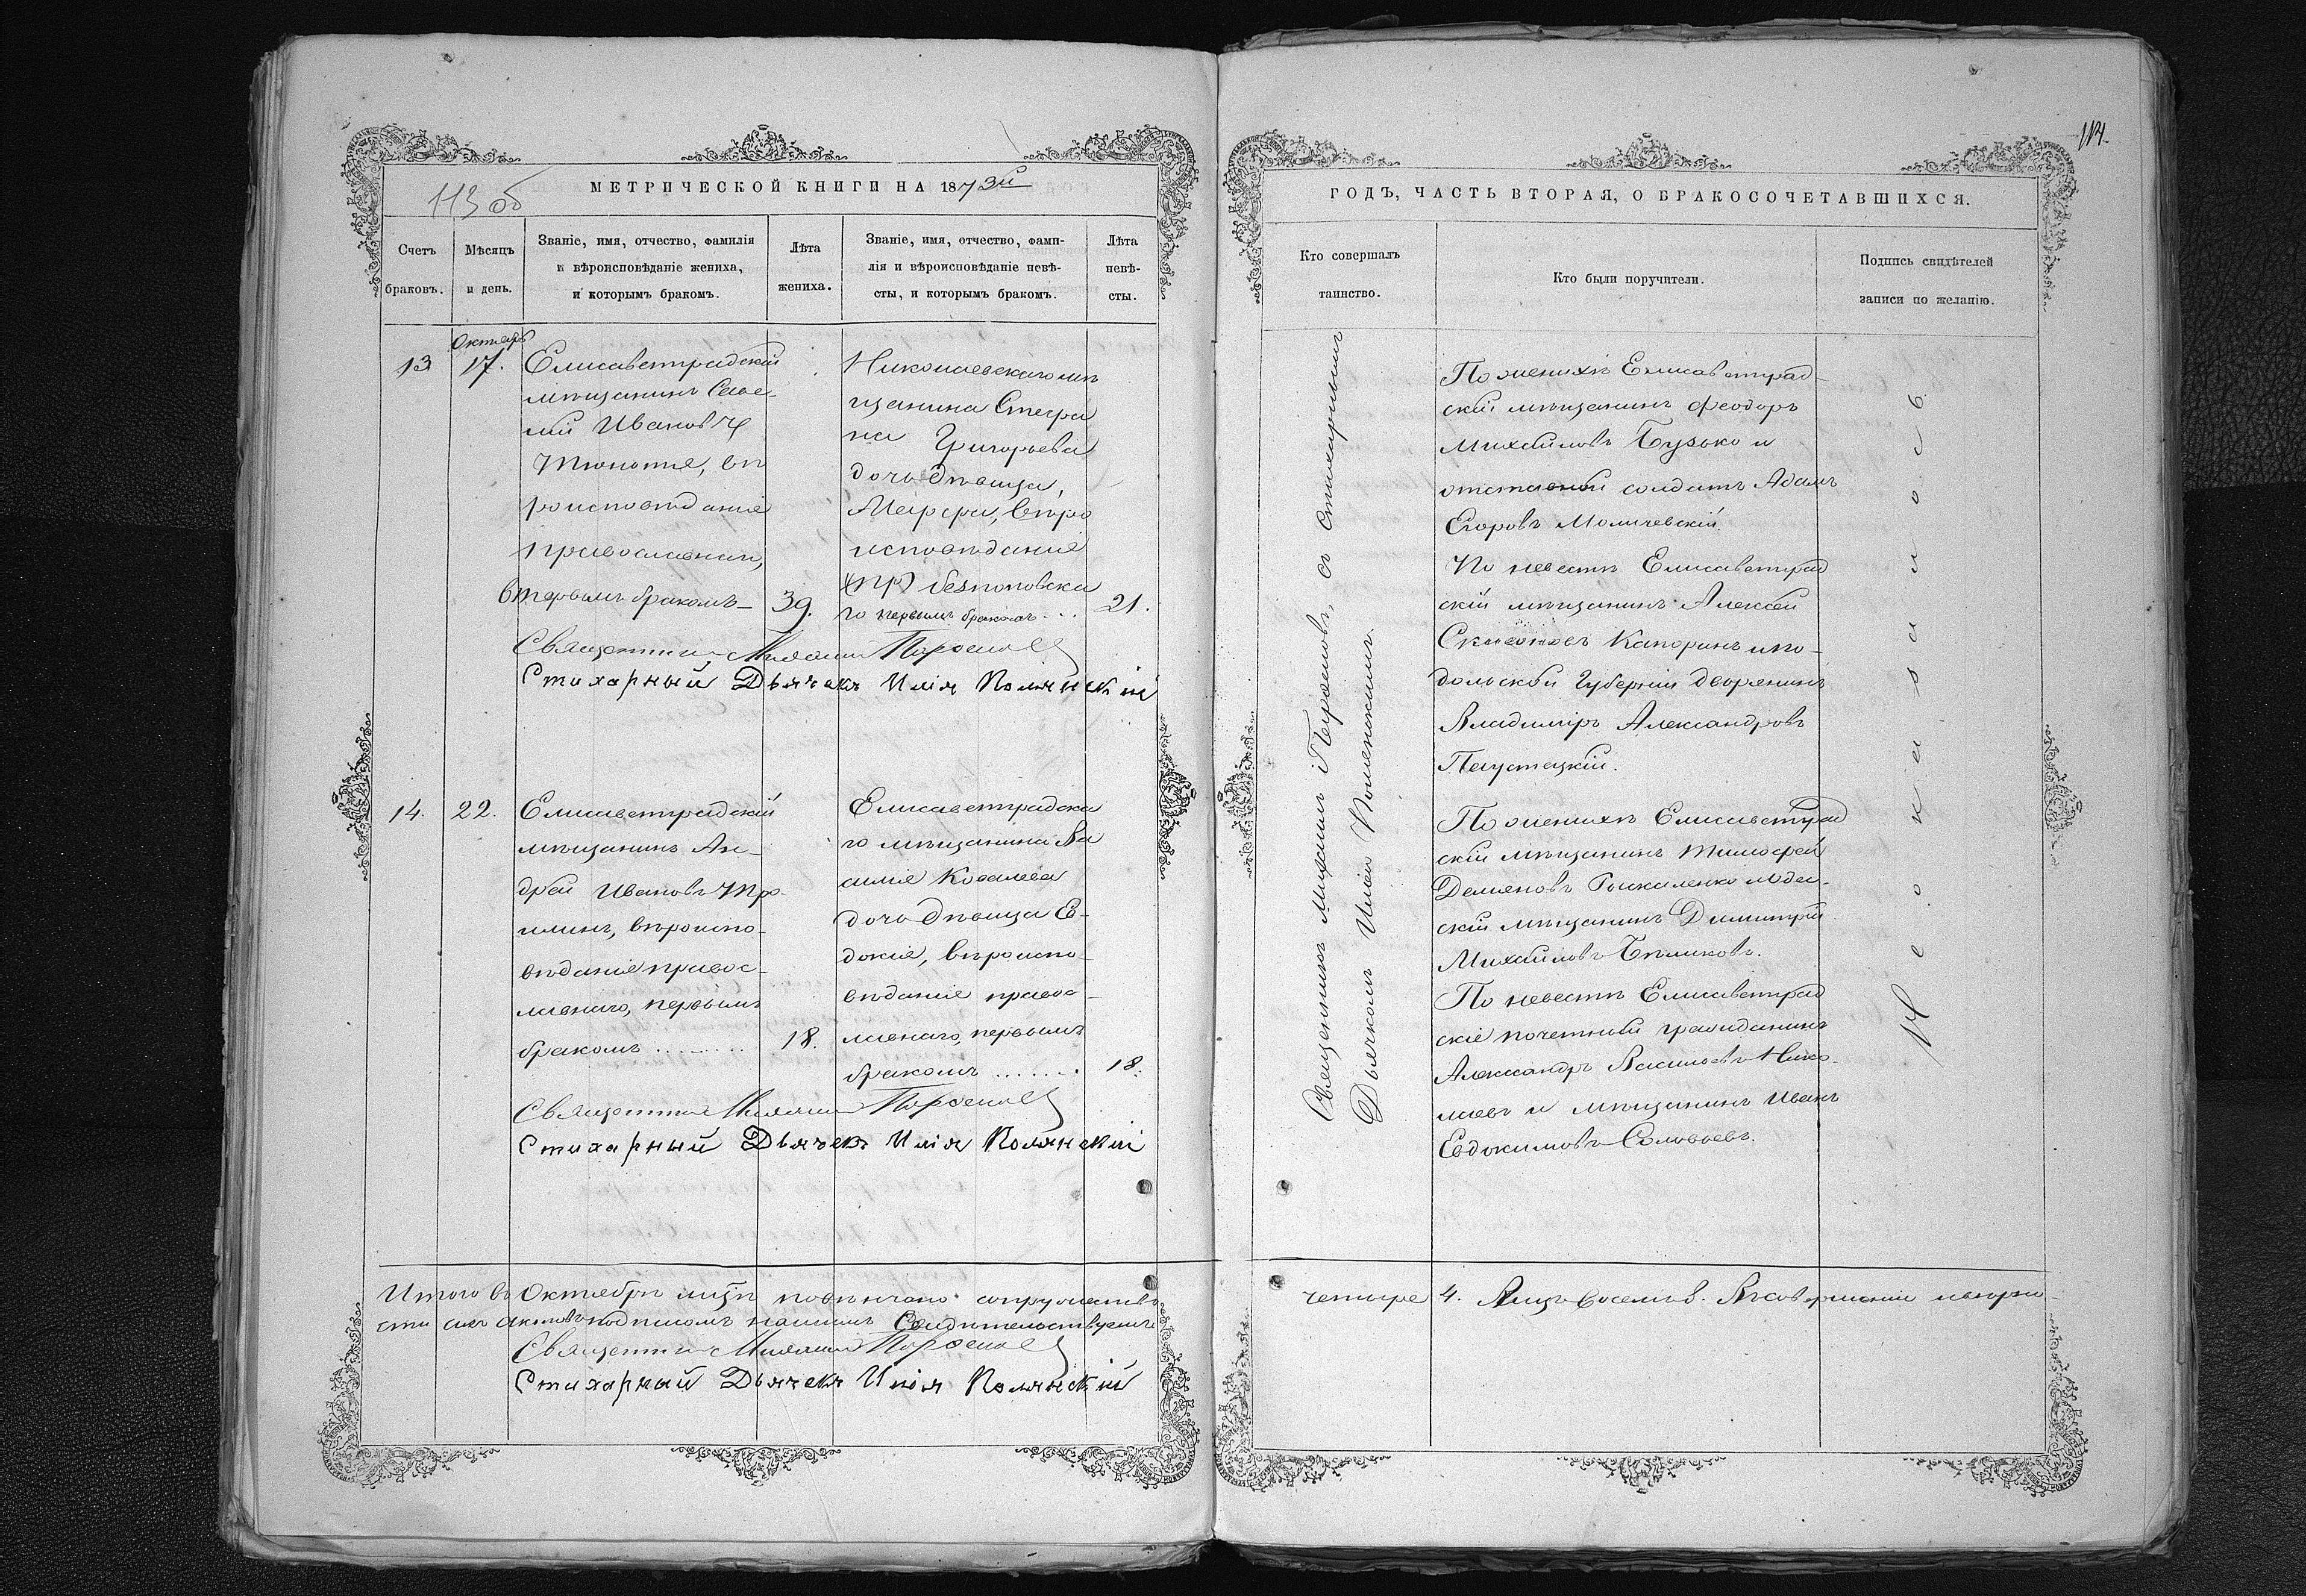 113 об
МЕТРИЧЕСКОЙ КНИГИ НА 1873й
Счетъ браковъ.
Мѣсяцъ и день.
Званіе, имя, отчество, фамилія
и вѣроисповѣданіе жениха,
и которымъ бракомъ.
Лѣта
жениха.
Званіе, имя, отчество, фами-
лія и вѣроисповѣданіе невѣ-
сты, и которымъ бракомъ.
Лѣта
невѣ-
сты.
13
Октябрь
17.
Елисаветградскій
мѣщанинъ
Ивановъ
вѣ
роисповѣданія
православнаго,
первымъ бракомъ
39.
Николаевскаго мѣ
щанина Стефа
на Григорьева
дочь дѣвица,
Марфа, вѣро
исповѣданія
безпоповска
го первымъ бракомъ
21.
Священникъ Михаилъ
Стихарный Дьячекъ Илія Полянскій
14.
22.
Елисаветградскій
мѣщанинъ Ан-
дрей Ивановъ
вѣроиспо-
вѣданія правос-
лавнаго, первымъ
бракомъ ........
18.
Елисаветградска
го мѣщанина Ва
силія Ковалева
дочь дѣвица Ев-
докія, вѣроиспо-
вѣданія правос-
лавнаго, первымъ
бракомъ .......
18.
Священникъ Михаилъ
Стихарный Дьячекъ Илія Полянскій
Итого въ Октябрѣ мцѣ повѣнчано супружествъ
сти сихъ актовъ подписомъ нашимъ Свидѣтельствуемъ
Священникъ Михаилъ
Стихарный Дьячекъ Илія Полянскій
114.
ГОДЪ, ЧАСТЬ ВТОРАЯ, О БРАКОСОЧЕТАВШИХСЯ.
Кто совершалъ
таинство.
Кто были поручители.
Подпись свидѣтелей
записи по желанію.
Священникъ Михаилъ съ Стихарнымъ
Дьячкомъ Иліею Полянскимъ.
По женихѣ Елисаветград-
скій мѣщанинъ Феодоръ
Михайловъ Бузько и
отставной солдатъ Адамъ
Егоровъ
По невестѣ Елисаветград
скій мѣщанинъ Алексей
Капоринъ и по-
дольской Губерніи дворянинъ
Владиміръ Александровъ
По женихѣ Елисаветград
скій мѣщанинъ Тимофей
Демяновъ
скій мѣщанинъ Димитрій
Михайловъ Бѣликовъ.
По невестѣ Елисаветград
скіе почетный гражданинъ
Александръ Васильевъ Нико-
лаевъ и мѣщанинъ Иванъ
Евдокимовъ Соловьевъ.
четыре 4. Лицъ восемь 8. Въ совершеніи